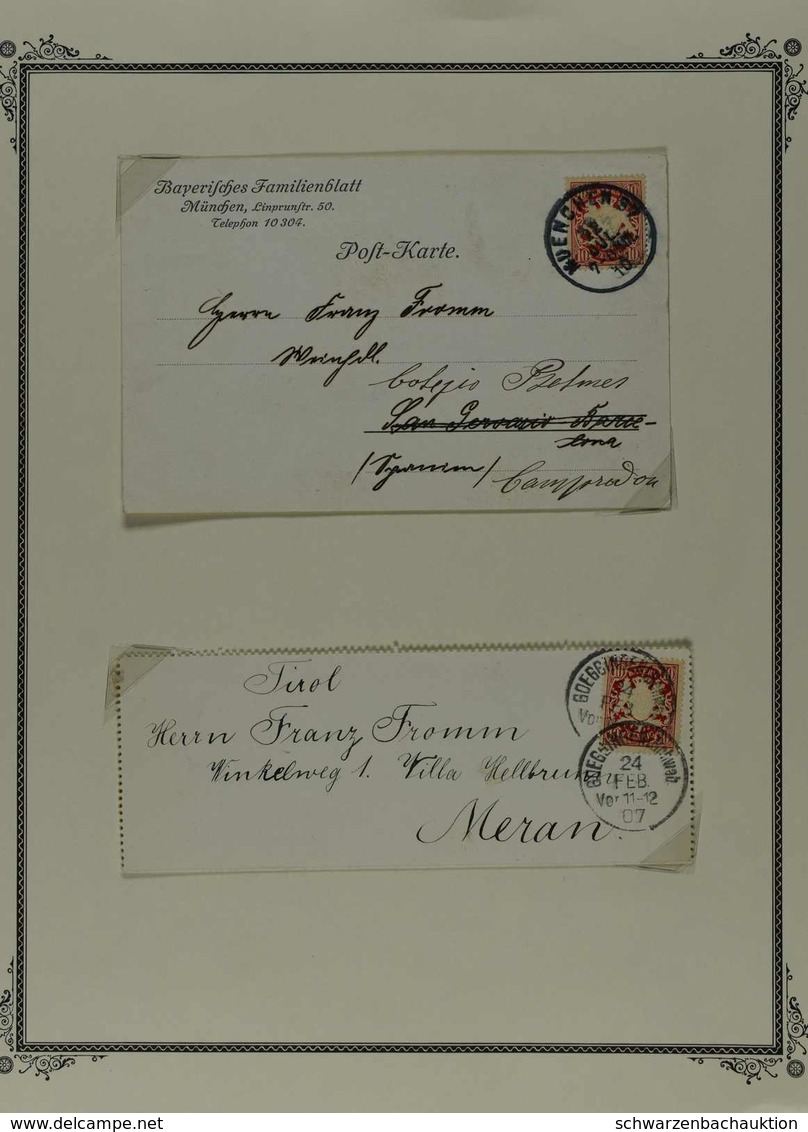 Bayerisches Familienblatt
München, Linprunstr. 50.
Telephon 10304.
Post-Karte.
MUENCHEN
JUL
7
10
10 10
Herrn Franz Fromm
Weinhdl.
Colegio Balmes
San Gervasio Barce-
lona
(Spanien)
Camprodon
Tirol
Herrn Franz Fromm
Winkelweg 1. Villa Hellbrunn
Meran.
GOEGGINGEN
Vor
GOEGGINGEN Schwab.
24
FEB.
Vor 11-12
07
www.delcampe.net
schwarzenbachauktion